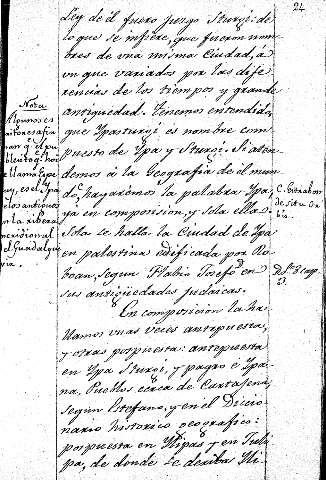 24
Ley de el fuero juzgo Sturgi: de
lo que se infiere, que fueron nom-
bres de una misma Ciudad, á
un que variados por las dife-
rencias de los tiempos y grande
antiguedad. Tenemos entendido,
que Ypasturgi es nombre com-
puesto de Ypa y Sturgi. Si aten-
demos á la Geografia de el mun-
do, hagaremos la palabra Ypa,
ya en composision, y sola ella.
Sola se halla la Ciudad de Ypa
en palestina edificada por Ro-
boan, segun Flabio Josefo en
sus antiguedades judaicas.
En composicion la ha-
llamos unas veces antepuesta,
y otras pospuesta: antepuesta
en Ypa Sturgi, y pagro é Ypa-
na, Pueblos cerca de Cartajena,
segun Estefano, y en el Diccio-
nario historico geografico:
pospuesta en Ylipas y en
pa, de donde se deriba Yli-
Nota
Algunos es
critores afir
man q. el pu
blecito q. hoi
se llama Espe
luy, es el Ypa
de los antiguos
en la ribera
meridional
del Guadalqui
vir.
C. Estrabon
de situ Or
bis.